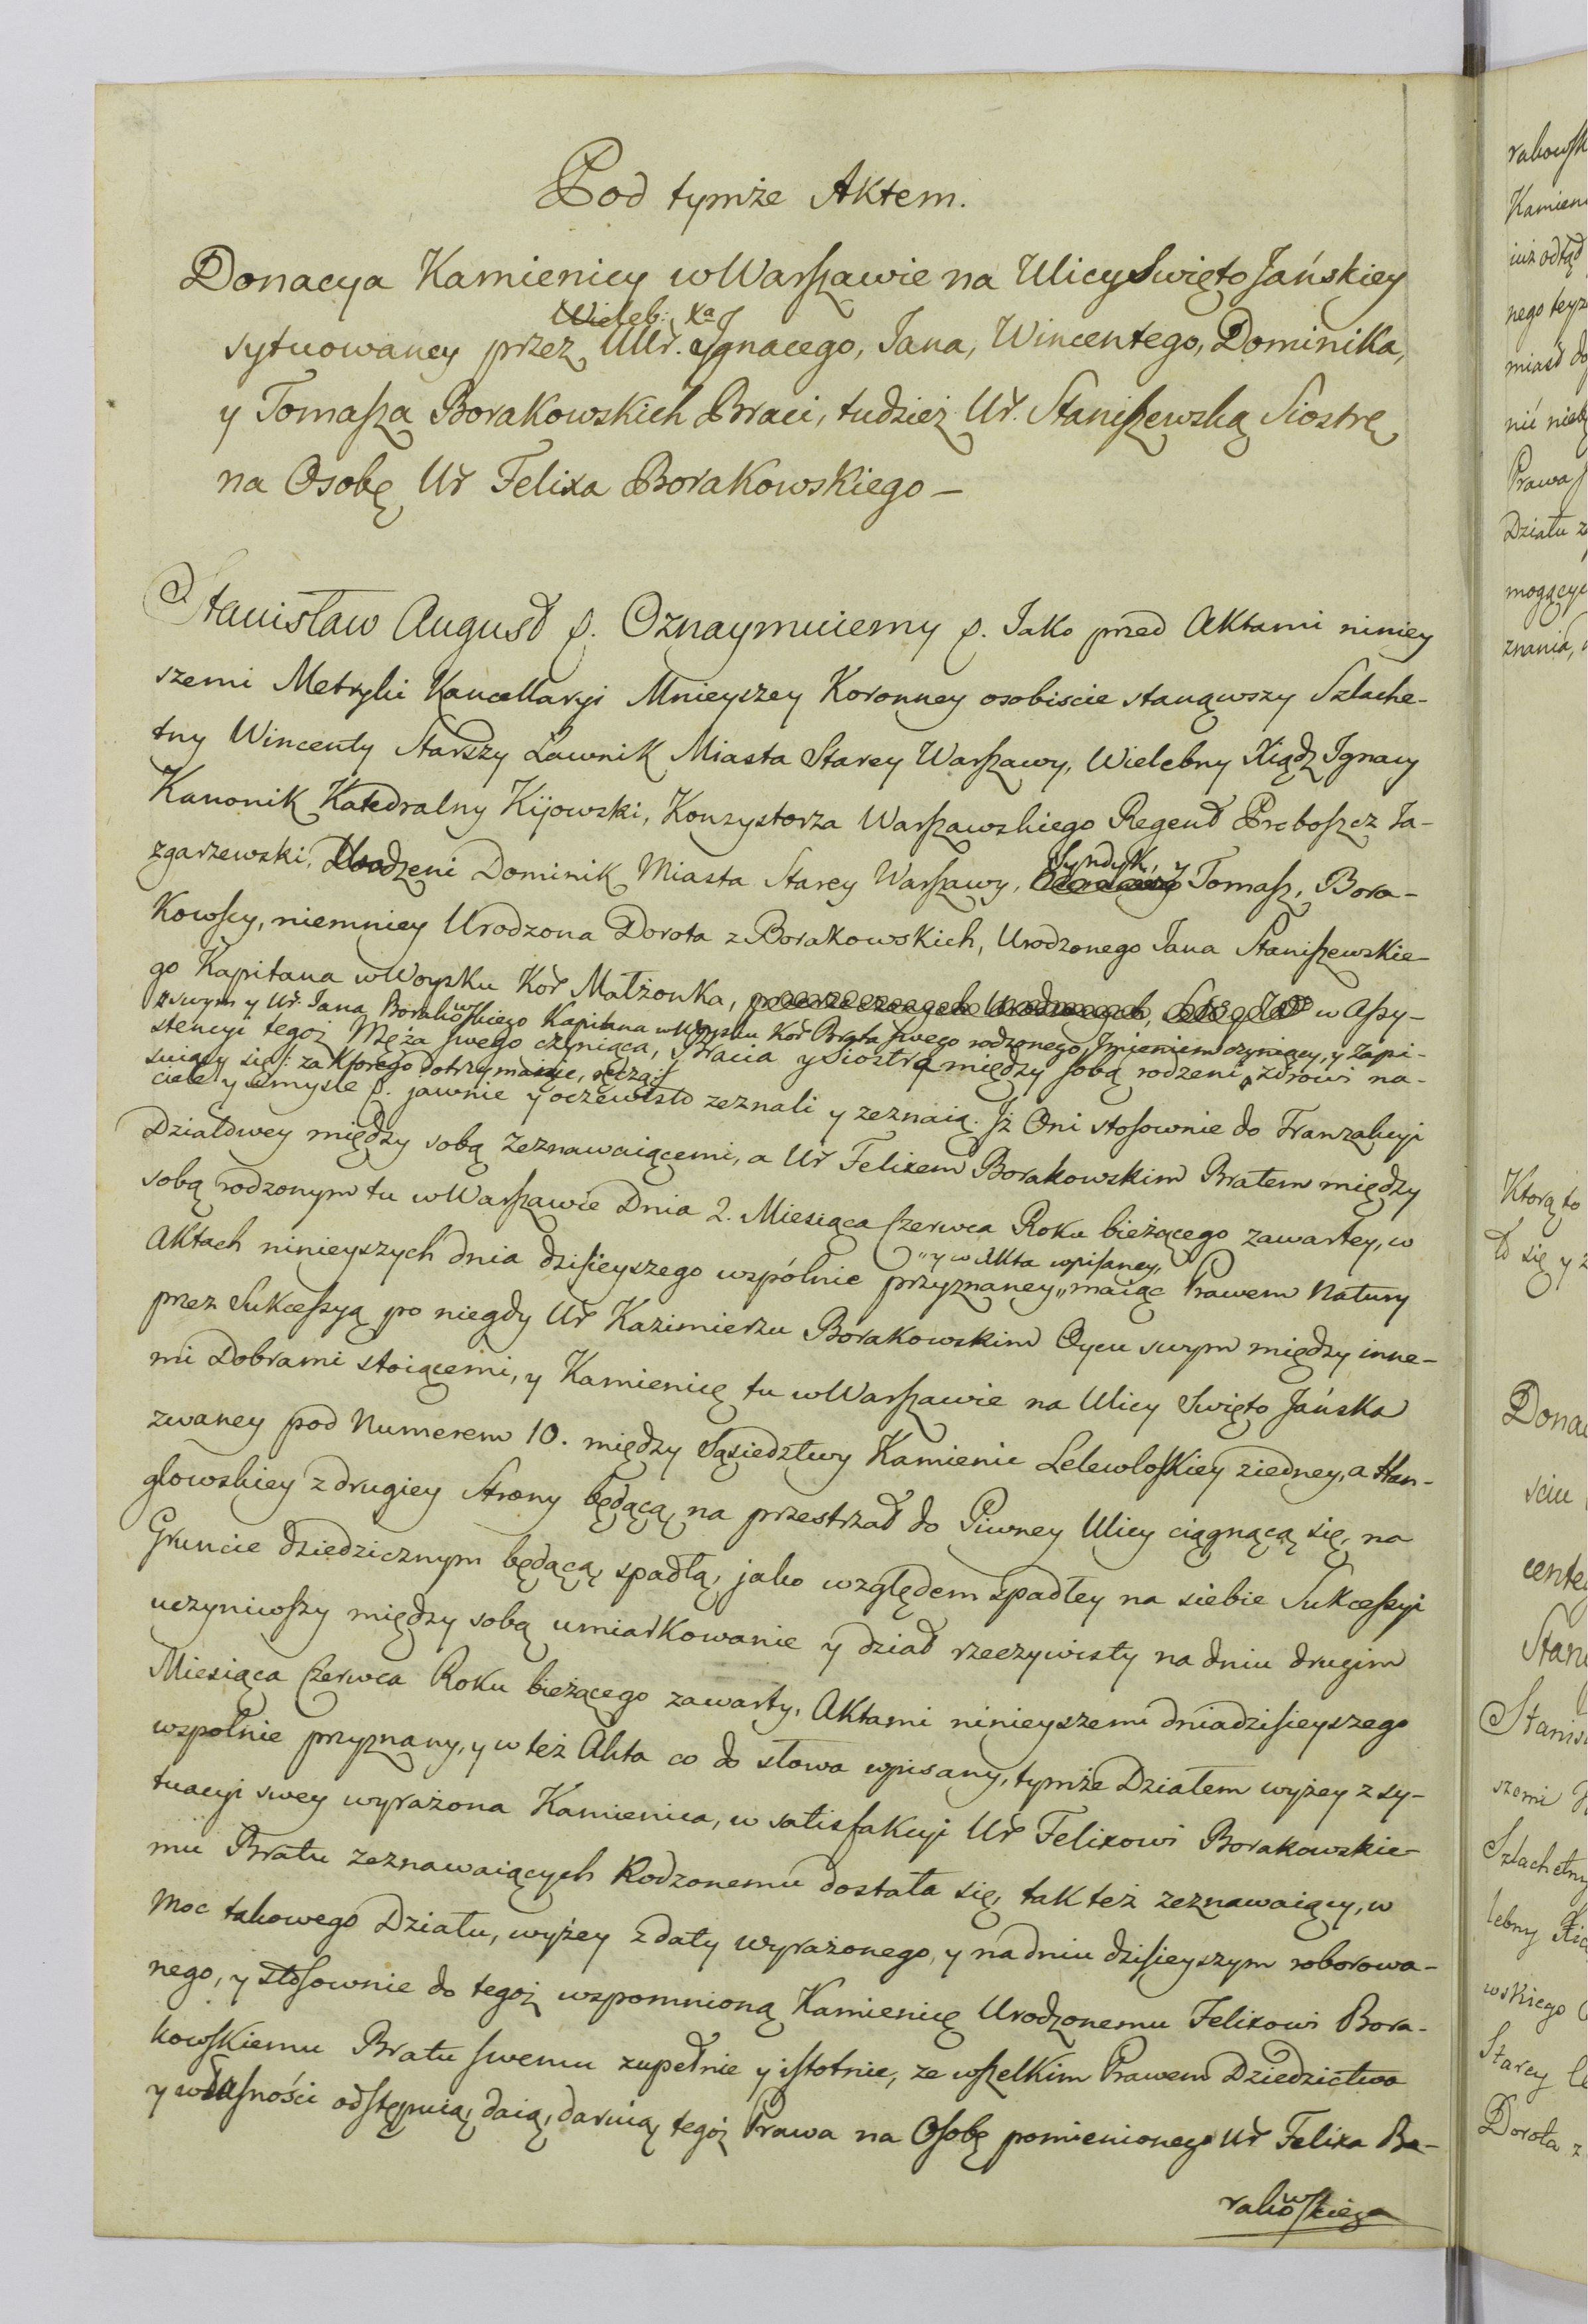 Pod tymże Aktem.
Donacya Kamienicy w Warszawie na Ulicy Swięto Jańskiey
Wieleb: Xa
sytuowaney przez UUr. Jgnacego, Jana, Wincentego, Dominika,
y Tomasza Borakowskich Braci, tudzież Ur. Staniszewską Siostrę
na Osobę Ur Felixa Borakowskiego —
Stanisław August p. Oznaymuiemy p. Jako przed Aktami niniey
szemi Metryki Kancellaryi Mnieyszey Koronney osobiscie stanąwszy Szlache-
tny Wincenty Starszy Ławnik Miasta Starey Warszawy, Wielebny Xiądz Jgnacy
Kanonik Katedralny Kijowski, Konzystorza Warszawskiego Regent Proboszcz Ja-
zgarzewski, Urodzeni Dominik Miasta Starey Warszawy, Syndyk, y Tomasz, Bora-
Kowscy, niemniey Urodzona Dorota z Borakowskich, Urodzonego Jana Staniszewskie-
go Kapitana w Woysku Kor Małżonka, w Assy-
z swym y Ur. Jana Borakowskiego Kapitana w Woysku Kor Brata swego rodzonego, Jmieniem czyniący, y Zapi-
stencyi tegoż Męża swego czyniąca, Bracia y Siostra między sobą rodzeni, zdrowi na-
suiący się /: za Ktorego dotrzymanie, ręczą :/
ciele y Umysle p. jawnie y oczewisto zeznali y zeznaią. Jż Oni stosownie do Tranzakcyi
Działowey między sobą Zeznawaiącemi, a Ur Felixem Borakowskim Bratem między
sobą rodzonym tu w Warszawie Dnia 2. Miesiąca Czerwca Roku bieżącego zawartey, w
Aktach ninieyszych dnia dzisieyszego wspólnie przyznaney „ maiąc Prawem Natury
„ y w Akta wpisaney,
przez Sukcessyą po niegdy Ur Kazimierzu Borakowskim Oycu swym między inne-
mi Dobrami stoiącemi, y Kamienicę tu w Warszawie na Ulicy Swięto Jańska
zwaney pod Numerem 10. między Sąsiedztwy Kamienic Lelewloskiey ziedney, a Han-
glowskiey z drugiey Strony będącą, na przestrzał do Piwney Ulicy ciągnącą się, na
Gruncie dziedzicznym będącą, spadłą, jako względem spadłey na siebie Sukcessyi
uczyniwszy między sobą umiarkowanie y dział rzeczywisty na dniu drugim
Miesiąca Czerwca Roku bieżącego zawarty, Aktami ninieyszemi dnia dzisieyszego
wspolnie przyznany, y w też Akta co do słowa wpisany, tymże Działem wyżey z sy-
tuacyi swey wyrażona Kamienica, w satisfakcyi Ur Felixowi Borakowskie-
mu Bratu zeznawaiących Rodzonemu dostała się, tak też zeznawaiący, w
Moc takowego Działu, wyżey z daty wyrażonego, y na dniu dzisieyszym roborowa-
nego, y stosownie do tegoż wspomnioną Kamienicę Urodzonemu Felixowi Bora-
kowskiemu Bratu swemu zupełnie y istotnie, ze wszelkim Prawem Dziedzictwa
y własności odstępuią, daią, daruią, tegoż Prawa na Osobę pomienionego Ur Felixa Bo-
rakowskiego